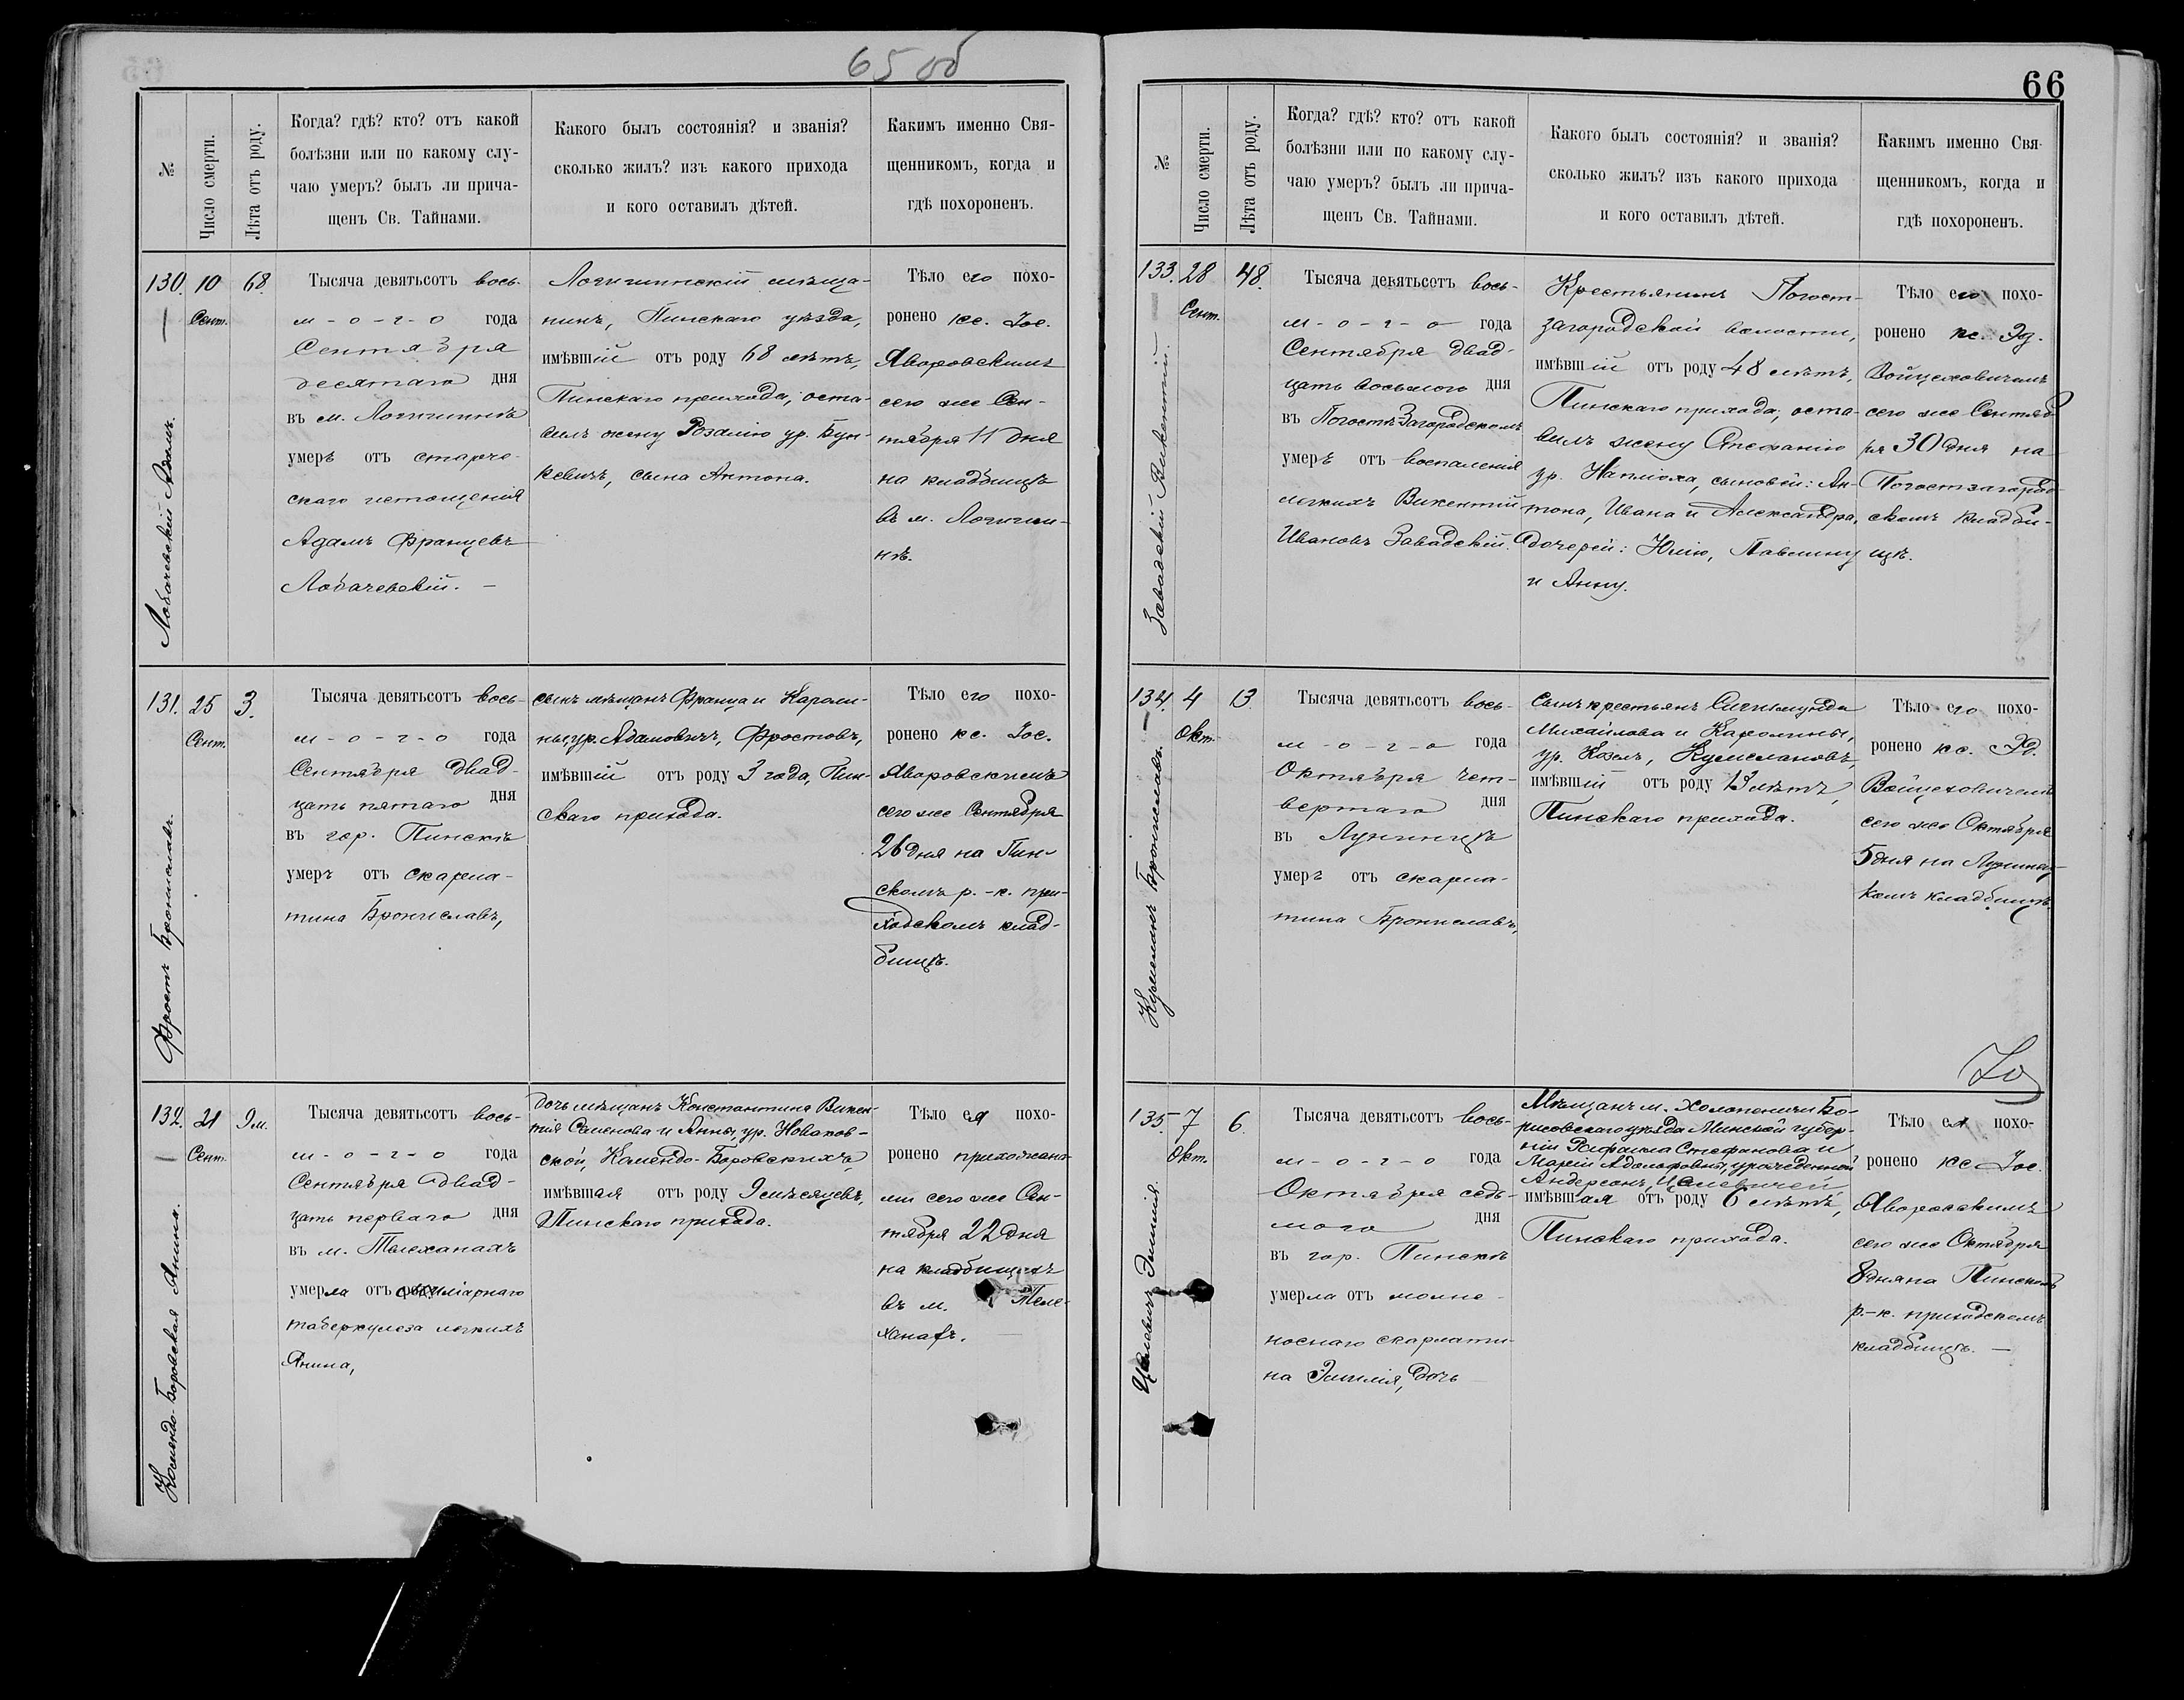 65 об
№
Число смерти.
Лѣта отъ роду.
Когда? гдѣ? кто? отъ какой
болѣзни или по какому слу-
чаю умеръ? былъ ли прича-
щенъ Св. Тайнами.
Какого былъ состоянія? и званія?
сколько жилъ? изъ какого прихода
и кого оставилъ дѣтей.
Какимъ именно Свя-
щенникомъ, когда и
гдѣ похороненъ.
130.
Лобачевскій Адамъ.
10
Сент.
68.
Тысяча девятьсотъ вось-
м - о - г - о года
Сентября
десятаго дня
въ м. Логишинѣ
умеръ отъ старче-
скаго истощенія
Адамъ Францевъ
Лобачевскій. —
Логишинскій мѣща-
нинъ, Пинскаго уѣзда,
имѣвшій отъ роду 68 лѣтъ,
Пинскаго прихода; оста-
вилъ жену Розалію ур. Бун-
кевичъ, сына Антона.
Тѣло его похо-
ронено кс. Іос.
Яворовскимъ
сего же Сен-
тября 11 дня
на кладбищѣ
въ м. Логиши-
нѣ.
131.
Фростъ Брониславъ.
25
Сент.
3.
Тысяча девятьсотъ вось-
м - о - г - о года
Сентября двад-
цать пятаго дня
въ гор. Пинскѣ
умеръ отъ скарла-
тина Брониславъ,
сынъ мѣщанъ Франца и Кароли-
ны, ур. Адамовичъ, Фростовъ,
имѣвшій отъ роду 3 года, Пин-
скаго прихода.
Тѣло его похо-
ронено кс. Іос.
Яворовскимъ
сего же Сентября
26 дня на Пин-
скомъ р.-к. при-
ходскомъ клад-
бищѣ.
132.
Комендо-Боровская Янина.
21
Сент.
9 м.
Тысяча девятьсотъ вось-
м - о - г - о года
Сентября двад-
цать перваго дня
въ м. Телеханахъ
умерла отъ
таберкулеза легкихъ
Янина,
дочь мѣщанъ Константина Викен-
тія Семенова и Анны, ур. Новаков-
ской, Комендо-Боровскихъ,
имѣвшая отъ роду 9 мѣсяцевъ,
Пинскаго прихода.
Тѣло ея похо-
ронено прихожана-
ми сего же Сен-
тября 22 дня
на кладбищахъ
въ м. Теле-
ханахъ.
66
№
Число смерти.
Лѣта отъ роду.
Когда? гдѣ? кто? отъ какой
болѣзни или по какому слу-
чаю умеръ? былъ ли прича-
щенъ Св. Тайнами.
Какого былъ состоянія? и званія?
сколько жилъ? изъ какого прихода
и кого оставилъ дѣтей.
Какимъ именно Свя-
щенникомъ, когда и
гдѣ похороненъ.
133.
Завадскій Викентій.
28
Сент.
48.
Тысяча девятьсотъ вось-
м - о - г - о года
Сентября двад-
цать восьмого дня
въ Погостѣ Загородскомъ
умеръ отъ воспаленія
легкихъ Викентій
Ивановъ Завадскій.
Крестьянинъ Погост-
загородской волости,
имѣвшій отъ роду 48 лѣтъ,
Пинскаго прихода; оста-
вилъ жену Стефанію
ур. Напліоха, сыновей: Ан-
тона, Ивана и Александра,
дочерей: Юлію, Павлину
и Анну.
Тѣло его похо-
ронено кс. Эд.
Войцеховичемъ
сего же Сентяб-
ря 30 дня на
Погостзагород-
скомъ кладби-
щѣ.
134.
Кумеланъ Брониславъ.
4
Окт.
13
Тысяча девятьсотъ вось-
м - о - г - о года
Октября чет-
вертаго дня
въ Лунинцѣ
умеръ отъ скарла-
тина Брониславъ,
Сынъ крестьянъ Сигизмунда
Михайлова и Каролины,
ур. Козелъ, Кумелановъ,
имѣвшій отъ роду 13 лѣтъ,
Пинскаго прихода.
Тѣло его похо-
ронено кс. Эд.
Войцеховичемъ
сего же Октября
5 дня на Лунинец-
комъ кладбищѣ.
135.
Цѣлевичъ Эмилія.
7
Окт.
6.
Тысяча девятьсотъ вось-
м - о - г - о года
Октября седь-
мого дня
въ гор. Пинскѣ
умерла отъ молне-
носнаго скарлати-
на Эмилія, дочь
Мѣщанъ м. Холопеничи Бо-
рисовскаго уѣзда Минской губер-
ніи Рафаила Стефанова и
Маріи Адольфовны, урожденной
Андерсонъ, Целевичей
имѣвшая отъ роду 6 лѣтъ,
Пинскаго прихода.
Тѣло ея похо-
ронено кс. Іос.
Яворовскимъ
сего же Октября
8 дня на Пинскомъ
р.-к. приходскомъ
кладбищѣ. —